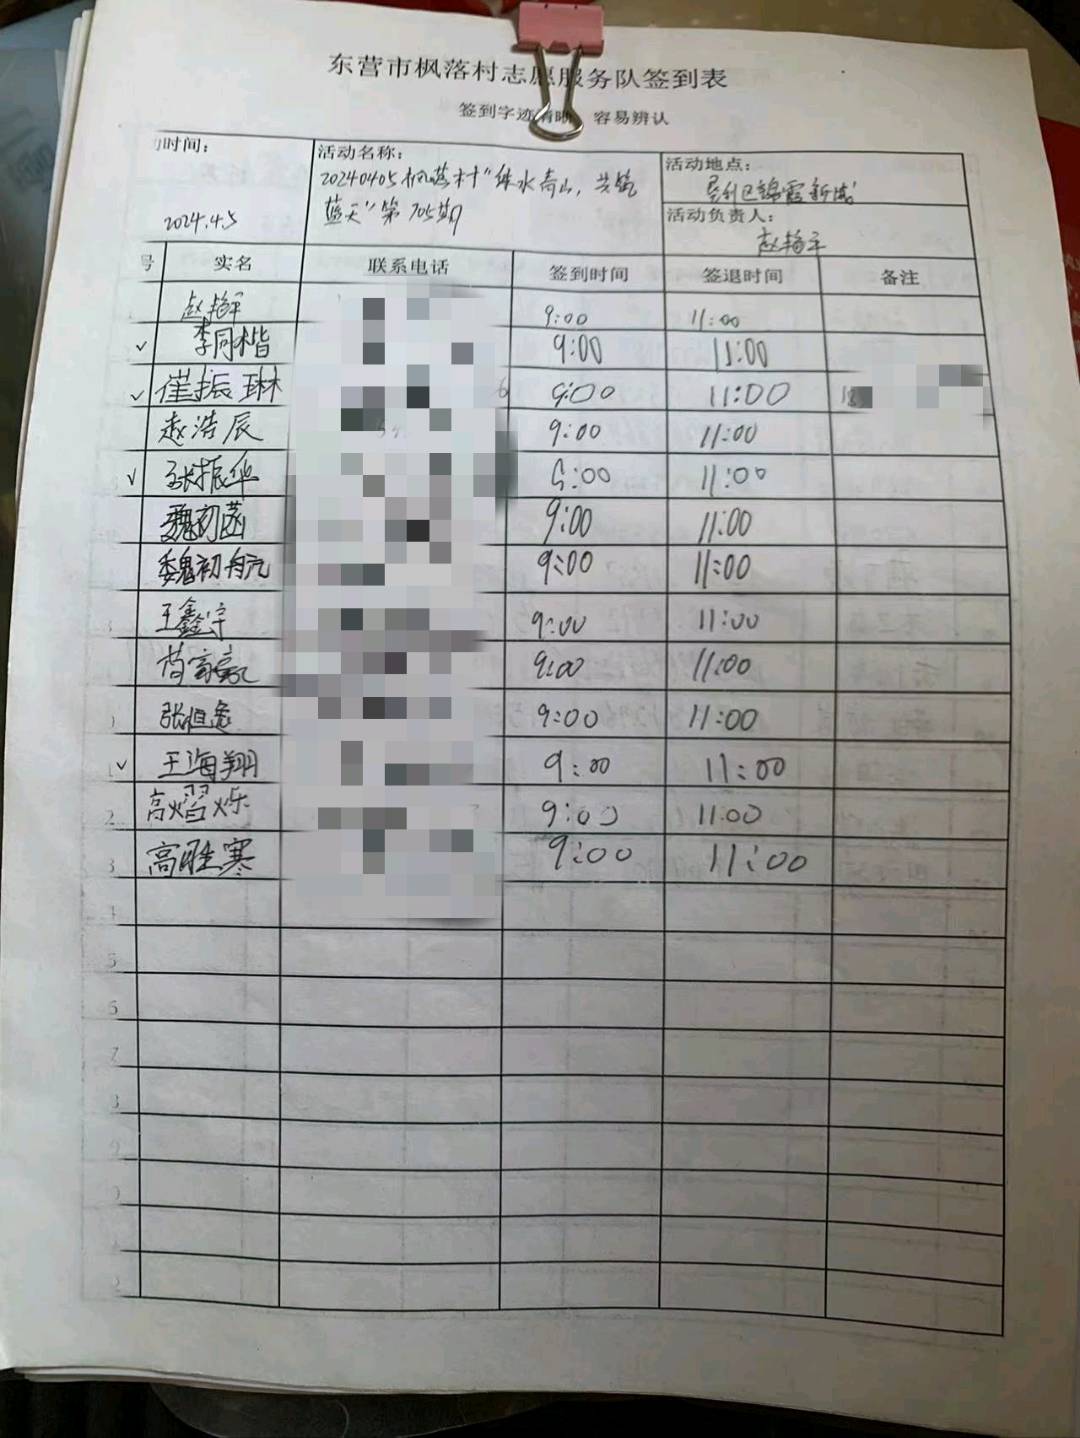 东营市枫落村志愿服务队签到表
签到字迹清晰 容易辨认
动时间:
2024.4.5
活动名称:
20240405枫落村"绿水青山,共筑
蓝天"第705期
活动地点:
垦利区锦霞新城
活动负责人:
号 实名 联系电话 签到时间 签退时间 备注
9:00 11:00
✓ 李同楷 9:00 11:00
✓ 崔振琳 9:00 11:00
赵浩辰 9:00 11:00
✓ 张振华 9:00 11:00
魏初菡 9:00 11:00
魏初航 9:00 11:00
王鑫宇 9:00 11:00
9:00 11:00
9:00 11:00
✓ 王海翔 9:00 11:00
2 高熠烁 9:00 11:00
3 高胜寒 9:00 11:00